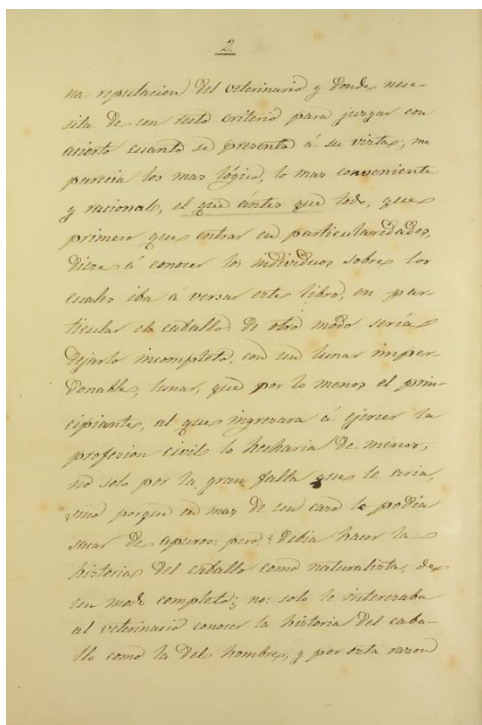 2.
na reputacion del veterinario y donde nece-
sita de un recto criterio para juzgar con
acierto cuanto se presenta á su vista; me
parecia los mas lógico, lo mas conveniente
y racional, el que ántes que todo, que
primero que entrar en particularidades,
diese á conocer los individuos sobre los
cuales iba á versar este libro, en par-
ticular el caballo: de otro modo seria
dejarlo incompleto, con un lunar imper-
donable, lunar, que por lo menos el prin-
cipiante, al que ingresara á ejercer la
profesion civil lo hecharia de menos,
no solo por la gran falta que le aria,
sino porque en mas de un caso le podia
sacar de apuros: pero ¿debia hacer la
historia del caballo como naturalista, de
un modo completo; no: solo le interesaba
al veterinario conocer la historia del caba-
llo como la del hombre, y por esta razon